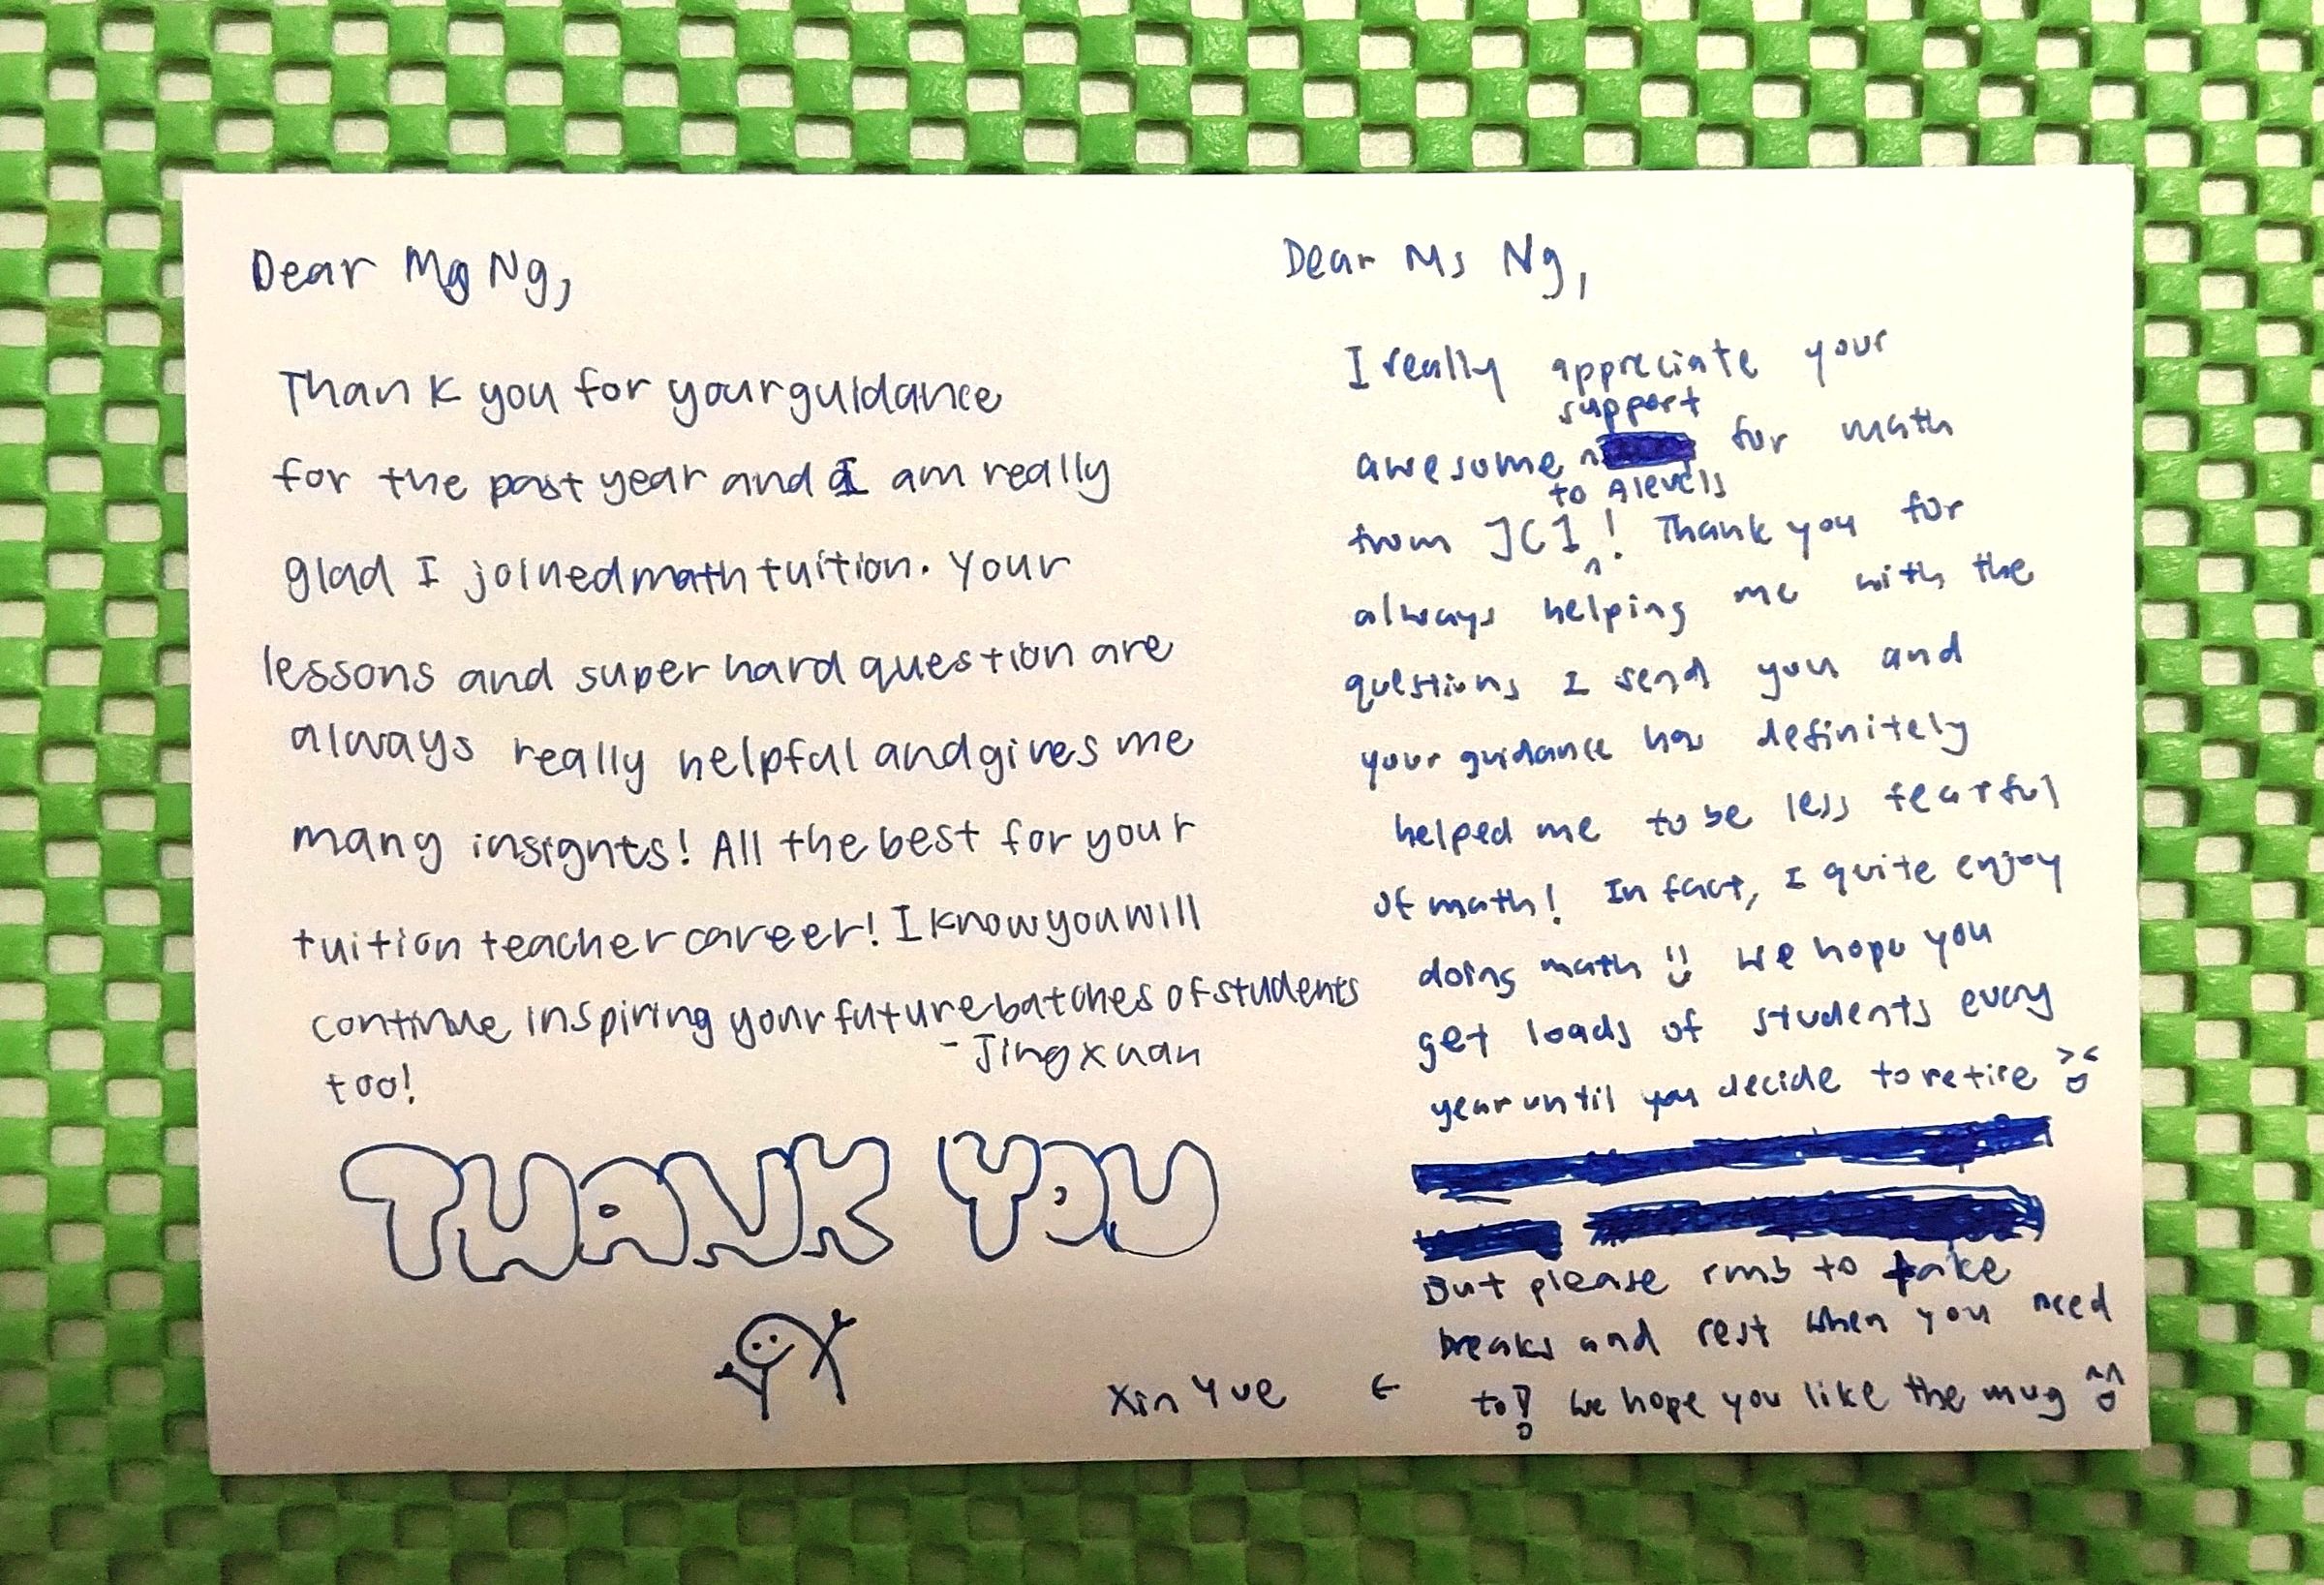 Dear Ms Ng,
Thank you for your guidance
for the past year and I am really
glad I joined math tuition. Your
lessons and super hard question are
always really helpful and gives me
many insights! All the best for your
tuition teacher career! I know you will
continue inspiring your future batches of students
too!
- Jing Xuan
THANK YOU
Dear Ms Ng,
I really appreciate your
awesome support for math
from JC1 to A levels! Thank you for
always helping me with the
questions I send you and
your guidance has definitely
helped me to be less fearful
of math! In fact, I quite enjoy
doing math :) We hope you
get loads of students every
year until you decide to retire
But please rmb to take
breaks and rest when you need
to! We hope you like the mug
← Xin Yue